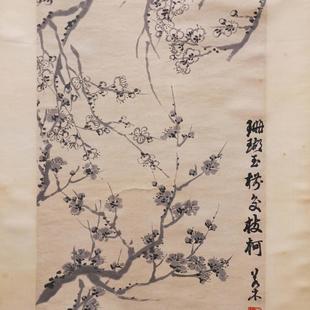 珊瑚玉樹交枝柯